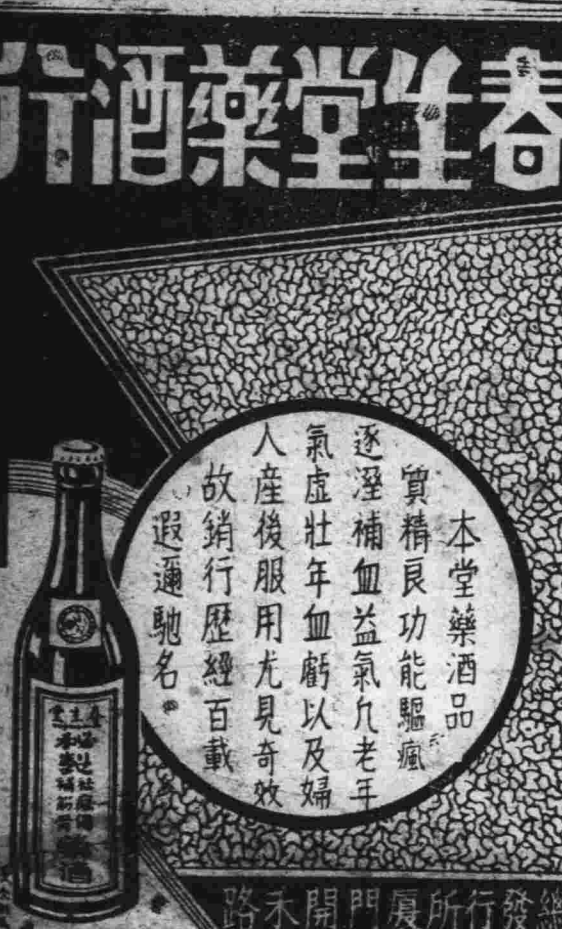 春生堂藥酒行
本堂藥酒品
質精良功能驅瘋
逐溼補血益氣凢老年
氣虛壯年血虧以及婦
人産後服用尤見奇效
故銷行歷經百載
遐邇馳名。
春生堂
補筋骨
藥酒
總發行所厦門開禾路